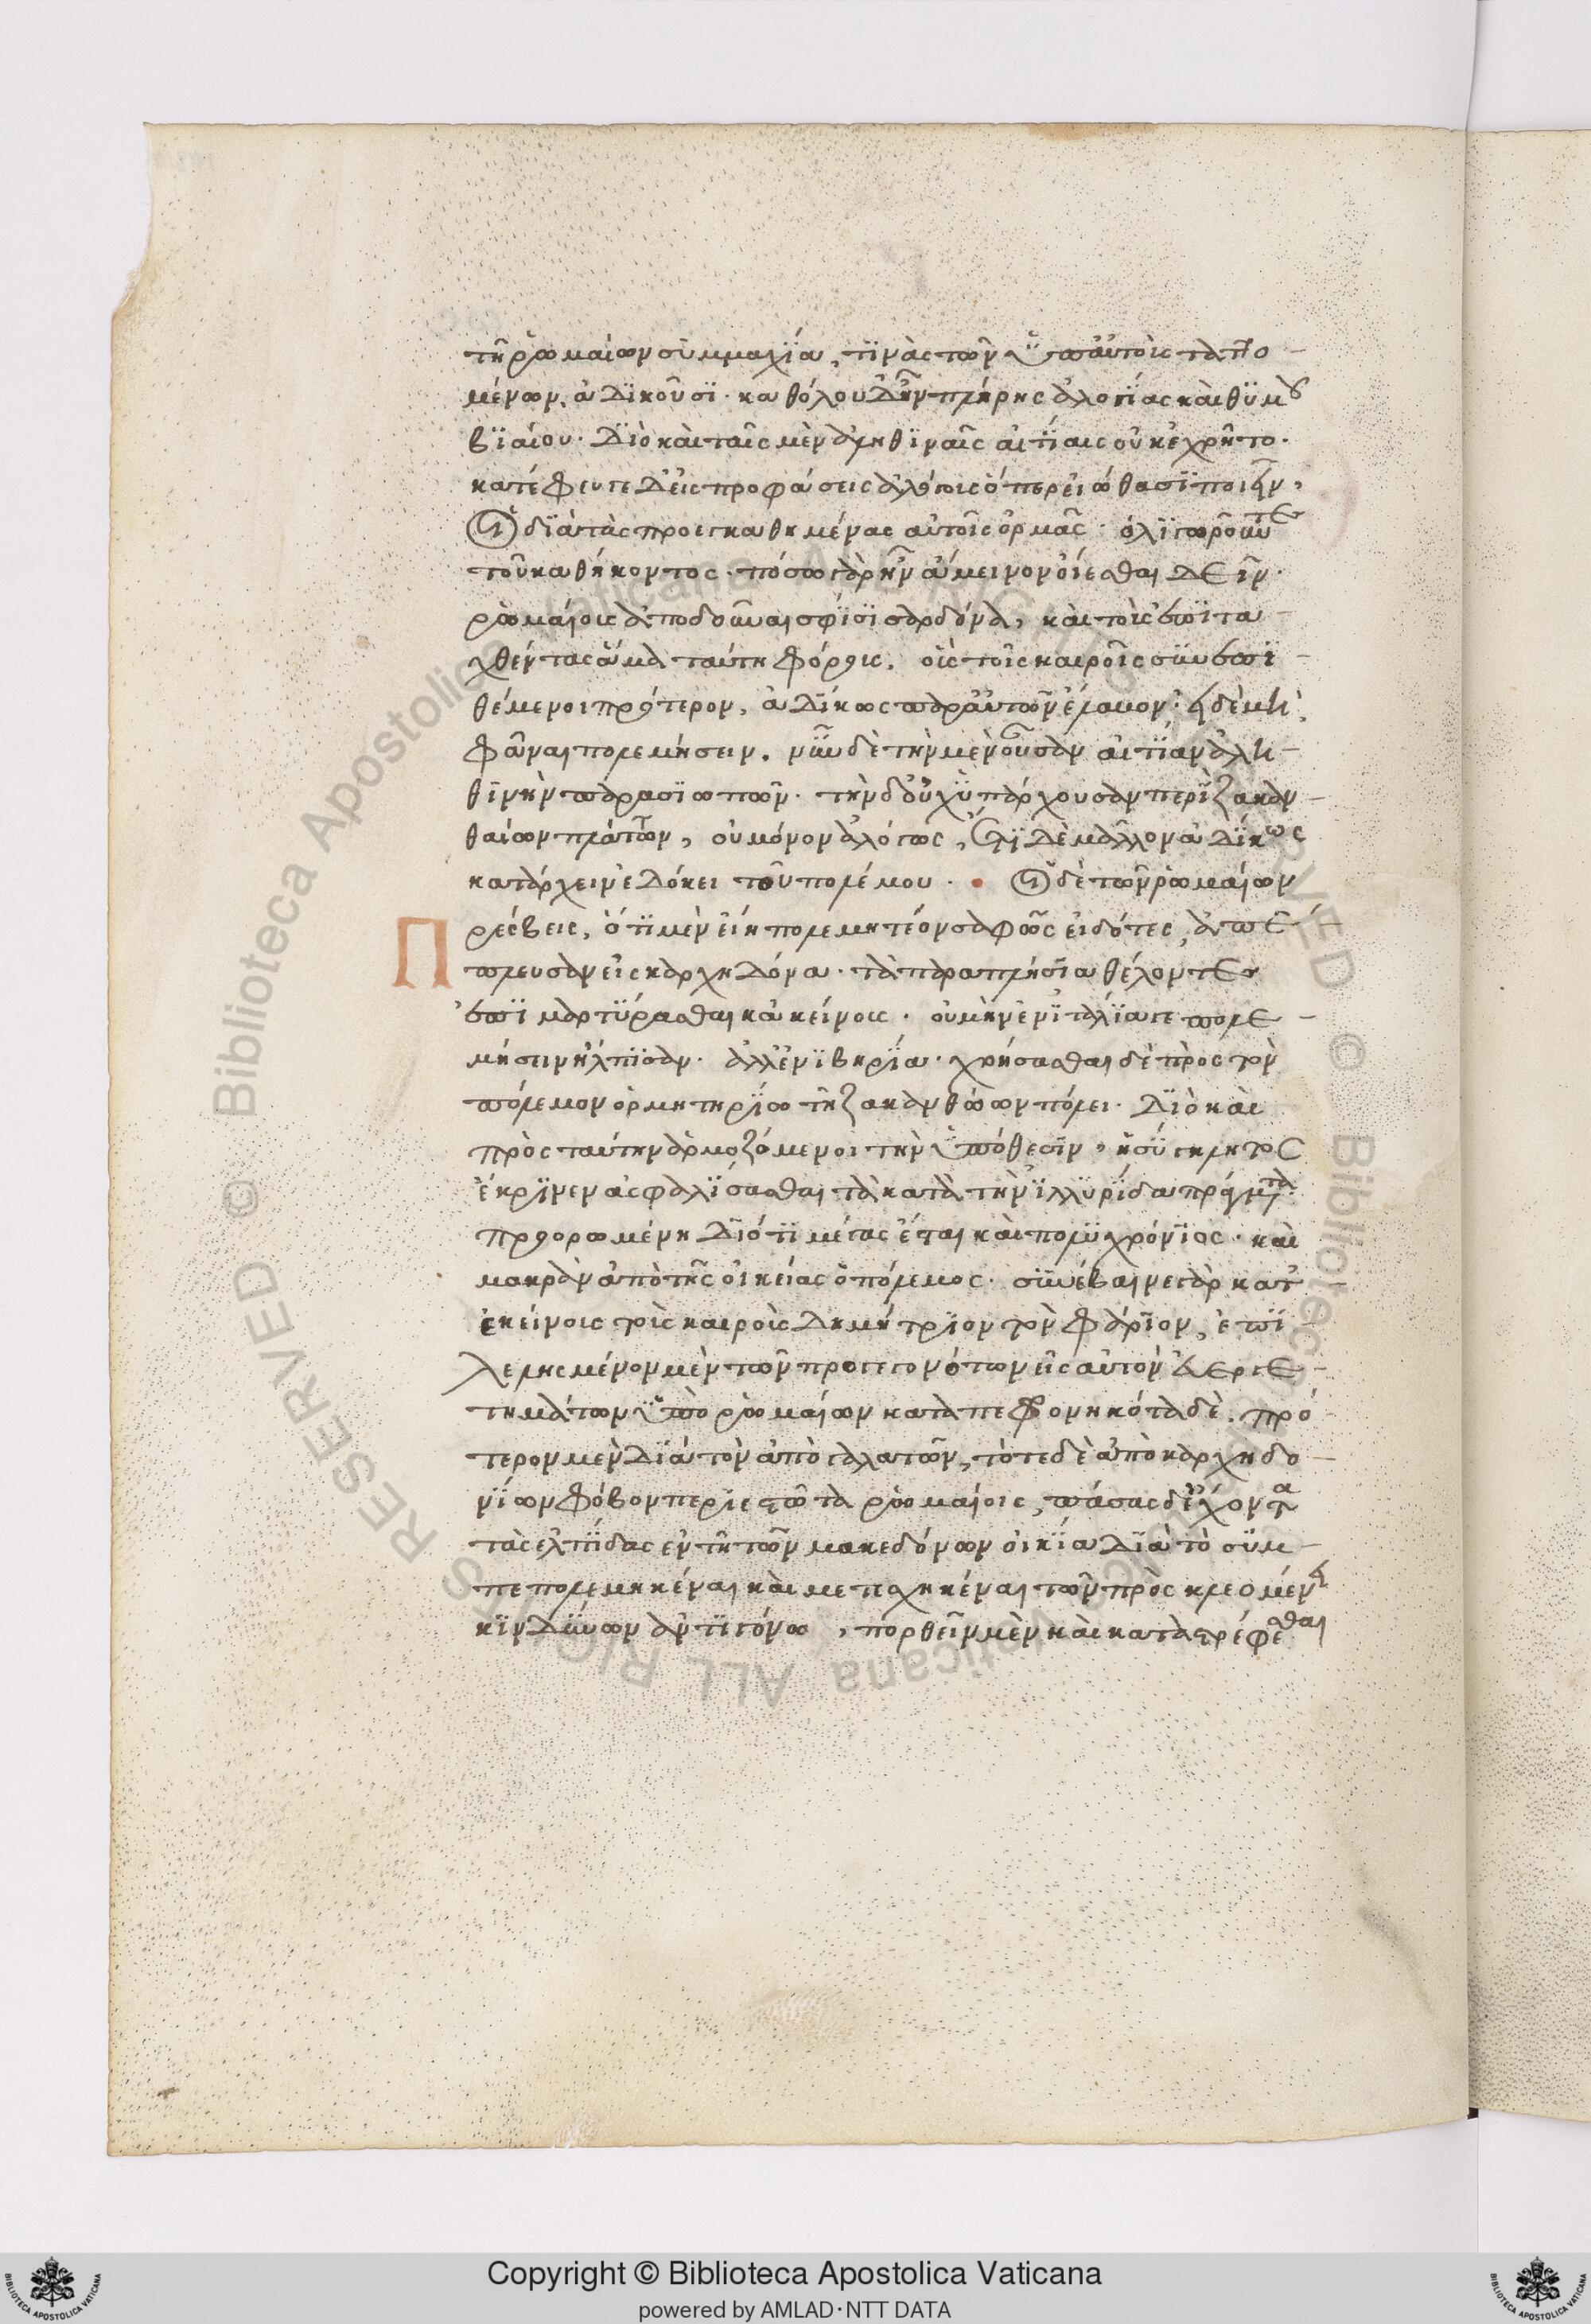 τῆ ῥωμαίων συμμαχία, τινὰς τῶν ὑπ αὐτοὺς ταττο
μένων, ἀδικοῦσι· καθόλου δ' ἦν πλήρης ἀλογίας καὶ θυμοῦ
βιαίου· διὸ καὶ ταῖς μὲν ἀληθιναῖς αἰτίαις οὐκ ἐχρῆτο·
κατέφευγε δ' εἰς προφάσεις ἀλόγους ὅπερ εἰώθασι ποιεῖν,
οἱ διὰ τὰς προεγκαθημένας αὐτοῖς ὁρμὰς· ὀλιγωροῦντες
τοῦ καθήκοντος· πόσω γὰρ ἦν ἄμεινον οἴεσθαι δεῖν·
ῥωμαίοις ἀποδοῦναι σφίσι σαρδόνα, καὶ τοὺς ἐπιτα
χθέντας ἅμα ταύτη φόρους, οὓς τοῖς καιροῖς συνεπι
θέμενοι πρότερον, ἀδίκως παρ' αὐτῶν ἔλαβον· εἰ δὲ μὴ,
φάναι πολεμήσειν. νῦν δὲ τὴν μὲν οὖσαν αἰτίαν ἀλη
θινὴν παρασιωπῶν· τὴν δ' οὐχ ὑπάρχουσαν περὶ ζακαν
θαίων πλάττων, οὐ μόνον ἀλόγως, ἔτι δὲ μᾶλλον ἀδίκως
κατάρχειν ἐδόκει τοῦ πολέμου· οἱ δὲ τῶν ῥωμαίων
Πρέσβεις, ὅτι μὲν εἴη πολεμητέον σαφῶς εἰδότες, ἀπέ
πλευσαν εἰς καρχηδόνα· τὰ παραπλήσια θέλοντες
ἐπιμαρτύρασθαι κἀκείνοις· οὐ μὴν ἐν ἰταλία γε πολε
μήσειν ἤλπισαν· ἀλλ' ἐν ἰβηρία· χρήσασθαι δὲ πρὸς τὸν
πόλεμον ὁρμητηρίω τῆ ζακανθαίων πόλει· διὸ καὶ
πρὸς ταύτην ἁρμοζόμενοι τὴν ὑπόθεσιν, ἡ σύγκλητος
ἔκρινεν ἀσφαλίσασθαι τὰ κατὰ τὴν ἰλλυρίδα πράγματα·
προορωμένη διότι μέγας ἔσται καὶ πολυχρόνιος· καὶ
μακρὰν ἀπὸ τῆς οἰκείας ὁ πόλεμος· συνέβαινε γὰρ κατ'
ἐκείνοις τοὺς καιροὺς δημήτριον τὸν φάριον, ἐπι
λελησμένον μὲν τῶν προγεγονότων εἰς αὐτὸν εὐεργε
τημάτων ὑπὸ ῥωμαίων καταπεφρονηκότα δὲ. πρό
τερον μὲν διὰ τὸν ἀπὸ γαλατῶν, τότε δὲ ἀπὸ καρχηδο
νίων φόβον περιεστῶτα ῥωμαίοις, πάσας δ' ἔχοντα
τὰς ἐλπίδας ἐν τῆ τῶν μακεδόνων οἰκία διὰ τὸ συμ
πεπολεμηκέναι καὶ μετεσχηκέναι τῶν πρὸς κλεομένη
κινδύνων ἀντιγόνω, πορθεῖν μὲν καὶ καταστρέφεσθαι
Copyright © Biblioteca Apostolica Vaticana
powered by AMLAD·NTT DATA